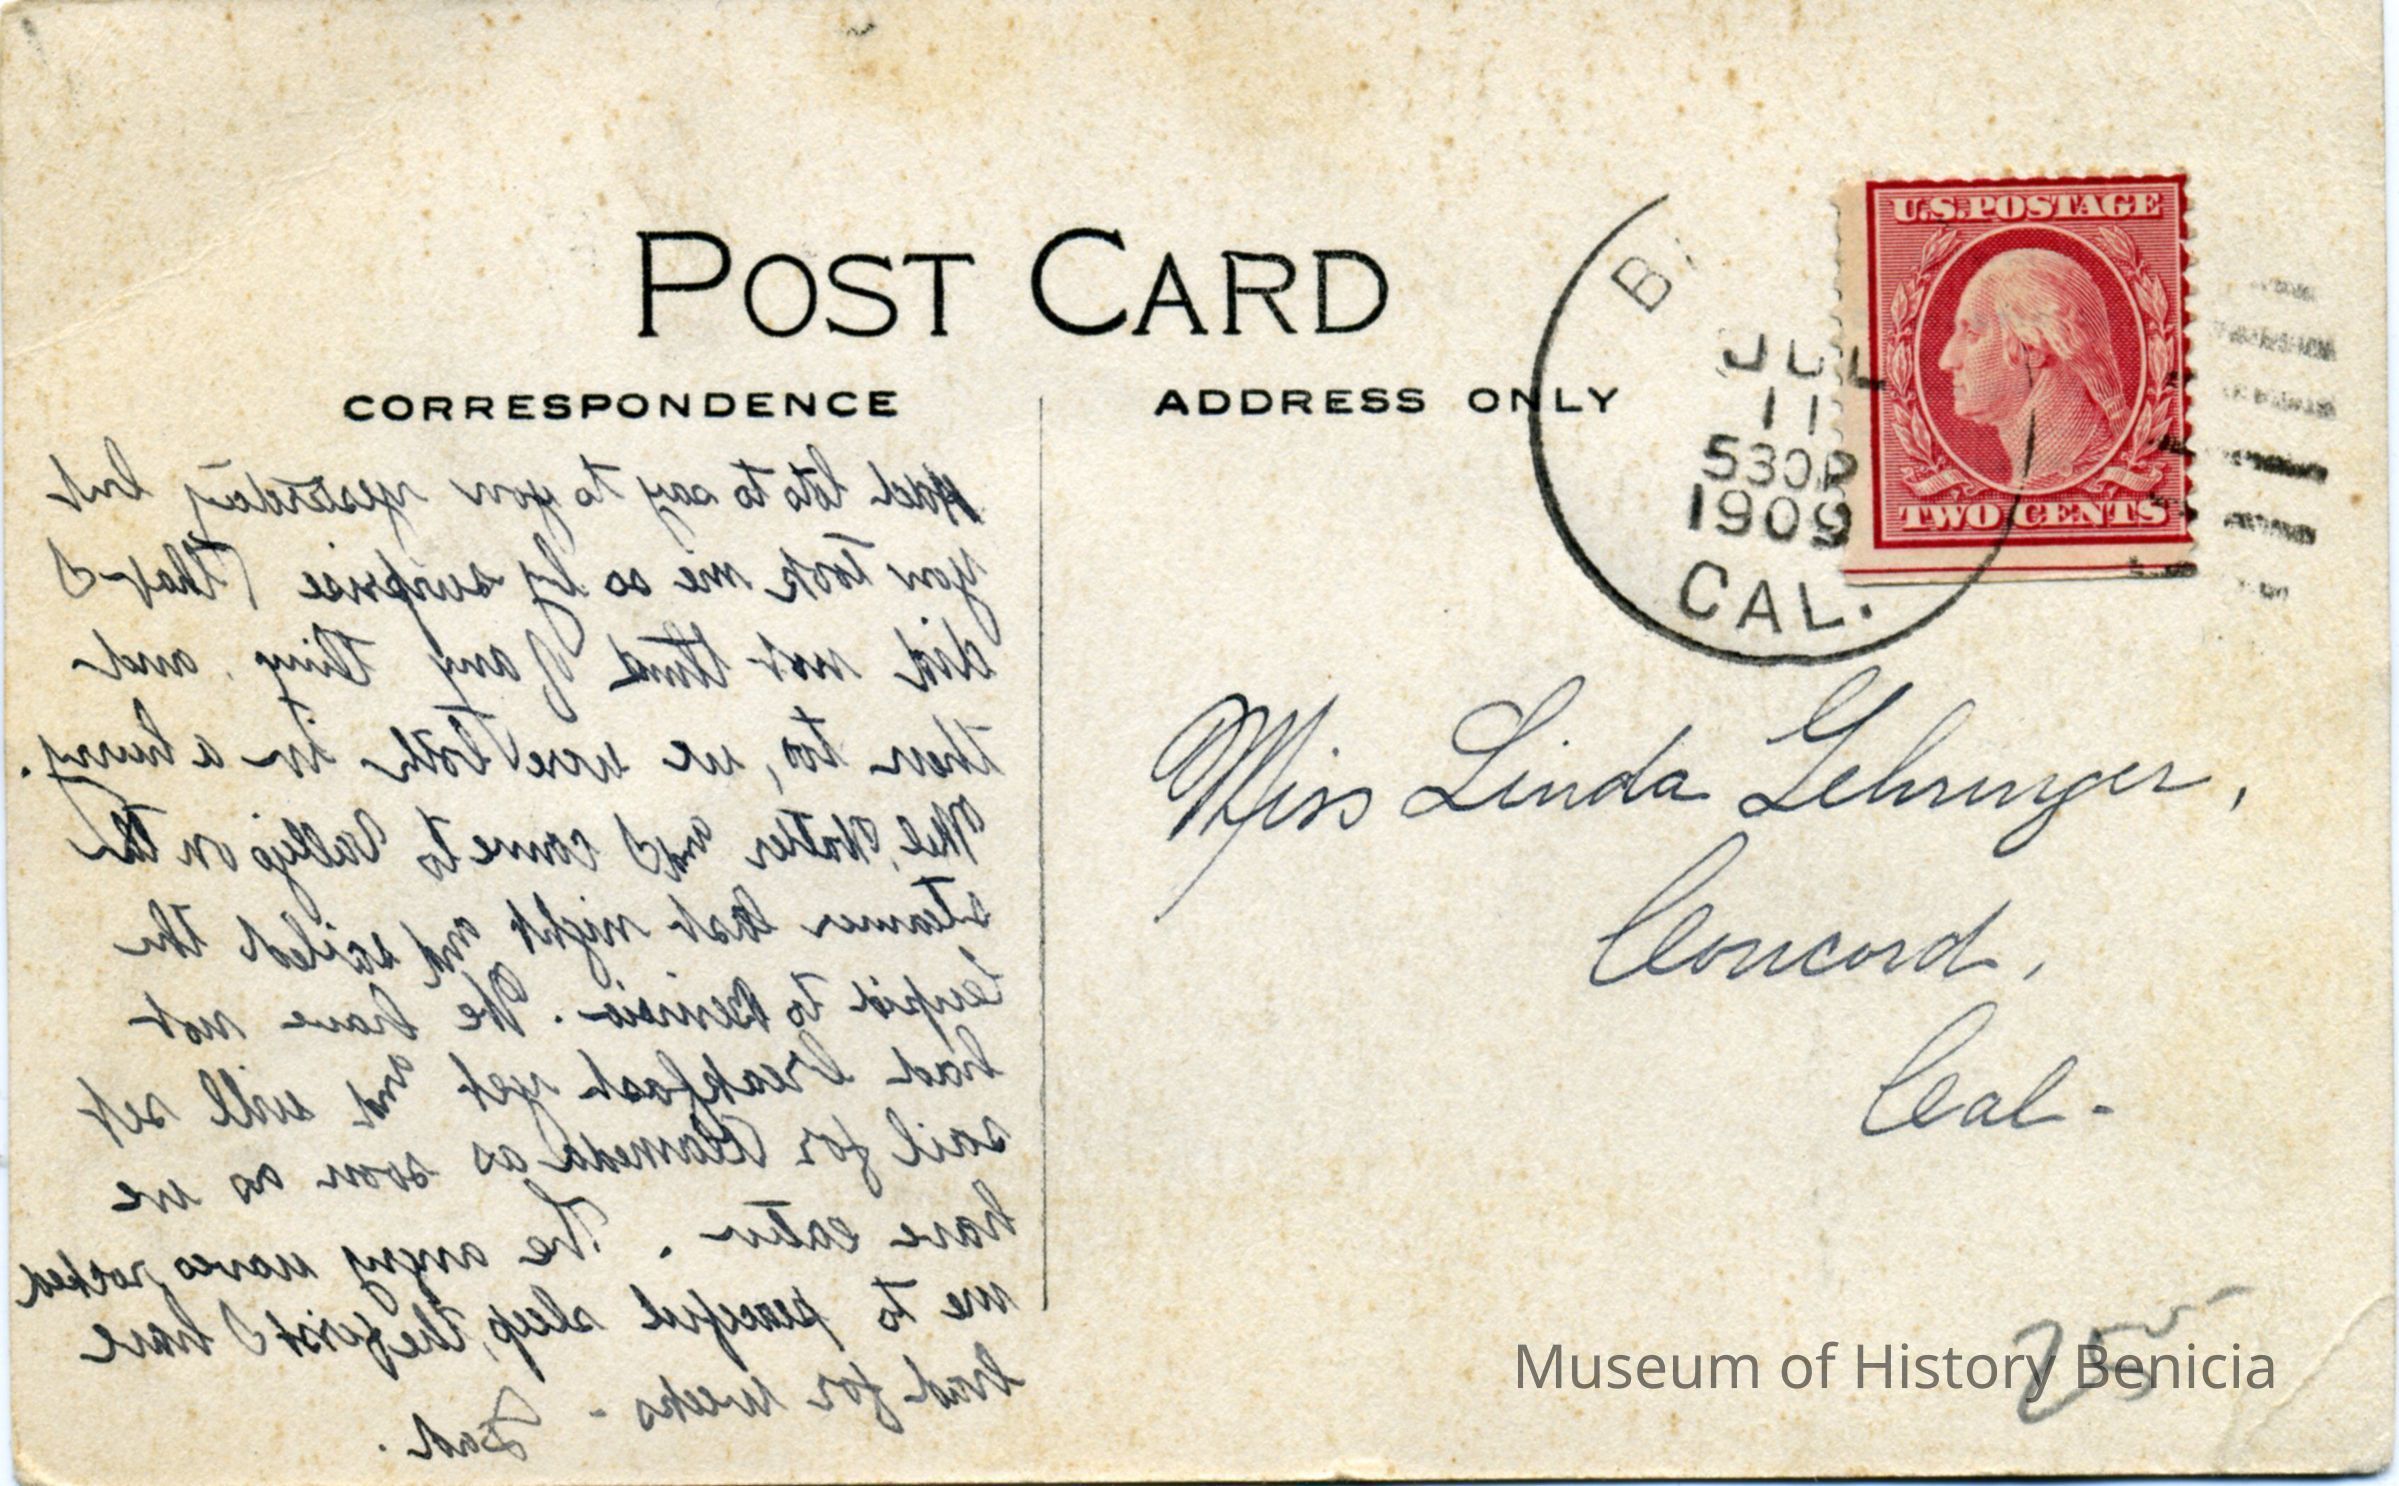 POST CARD
CORRESPONDENCE
ADDRESS ONLY
U.S. POSTAGE
TWO CENTS
B
JUL
11
530P
1909
CAL.
Had lots to say to you yesterday but
you took me so by surprise that I
did not think of any thing, and
then too, we were both in a hurry.
Mel, Walter and I come to Vallejo on the
steamer last night and sailed the
to Benicia. We have not
had breakfast yet and will set
sail for Alameda as soon as we
have eaten. The angry waves rocked
me to peaceful sleep, the first I have
had for weeks -
Miss Linda Gehringer,
Concord,
Cal-
25
Museum of History Benicia